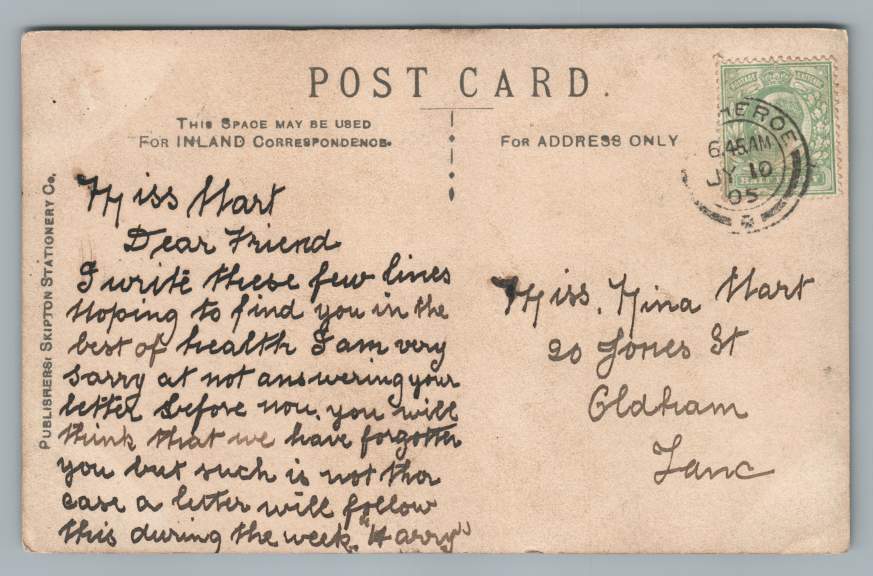 POST CARD.
THIS SPACE MAY BE USED
FOR INLAND CORRESPONDENCE.
FOR ADDRESS ONLY
PUBLISHERS: SKIPTON STATIONERY CO.
HEROE
6.45 AM
JY 10
05
Miss Hart
Dear Friend
I write these few lines
Hoping to find you in the
best of health I am very
sorry at not answering your
letter before now. you will
think that we have forgotten
you but such is not the
case a letter will follow
this during the week. "Harry"
Miss. Nina Hart
20 Jones St
Oldham
Lanc